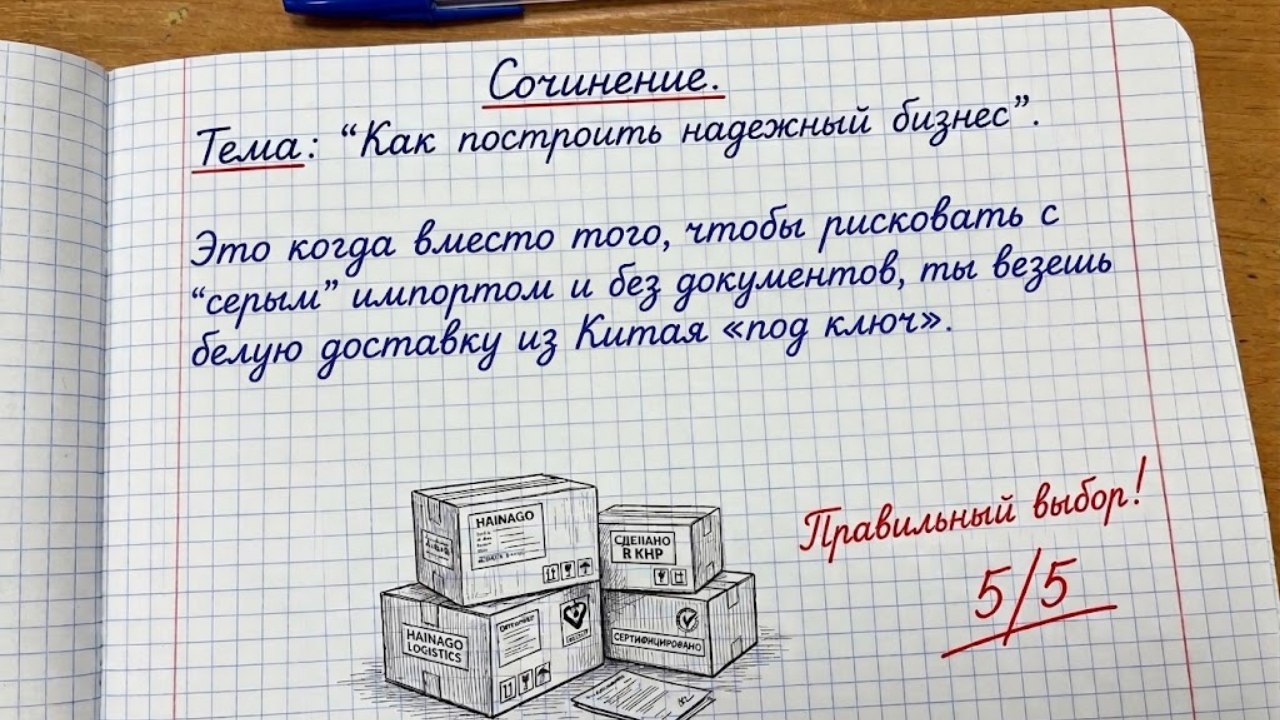 Сочинение.
Тема: “Как построить надежный бизнес”.
Это когда вместо того, чтобы рисковать с
“серым” импортом и без документов, ты везешь
белую доставку из Китая «под ключ».
HAINAGO
СДЕПАНО
R КНР
HAINAGO
LOGISTICS
СЕРТИФИЦИРОВАНО
Правильный выбор!
5/5